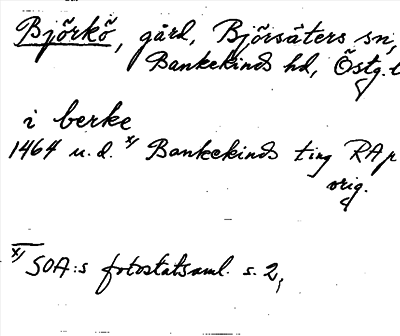 Björkö, gård, Björsäters sn,
Bankekinds hd, Östg.l
i berke
1464 u.d. x) Bankekinds ting RAp
orig.
x) SOA:s fotostatsaml. s. 2,